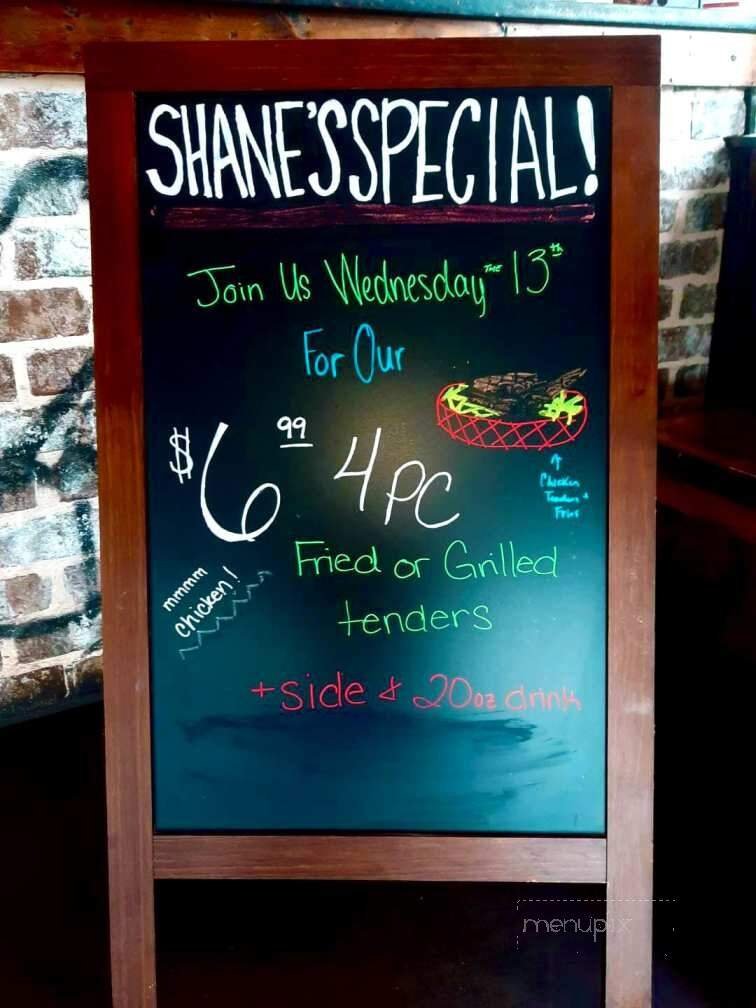 SHANE'S SPECIAL!
Join Us Wednesday THE 13th
For Our
$6.99 4 PC
↑
Chicken
Tenders +
Fries
Fried or Grilled
tenders
mmmm
chicken!
+ side & 20oz drink
menupix